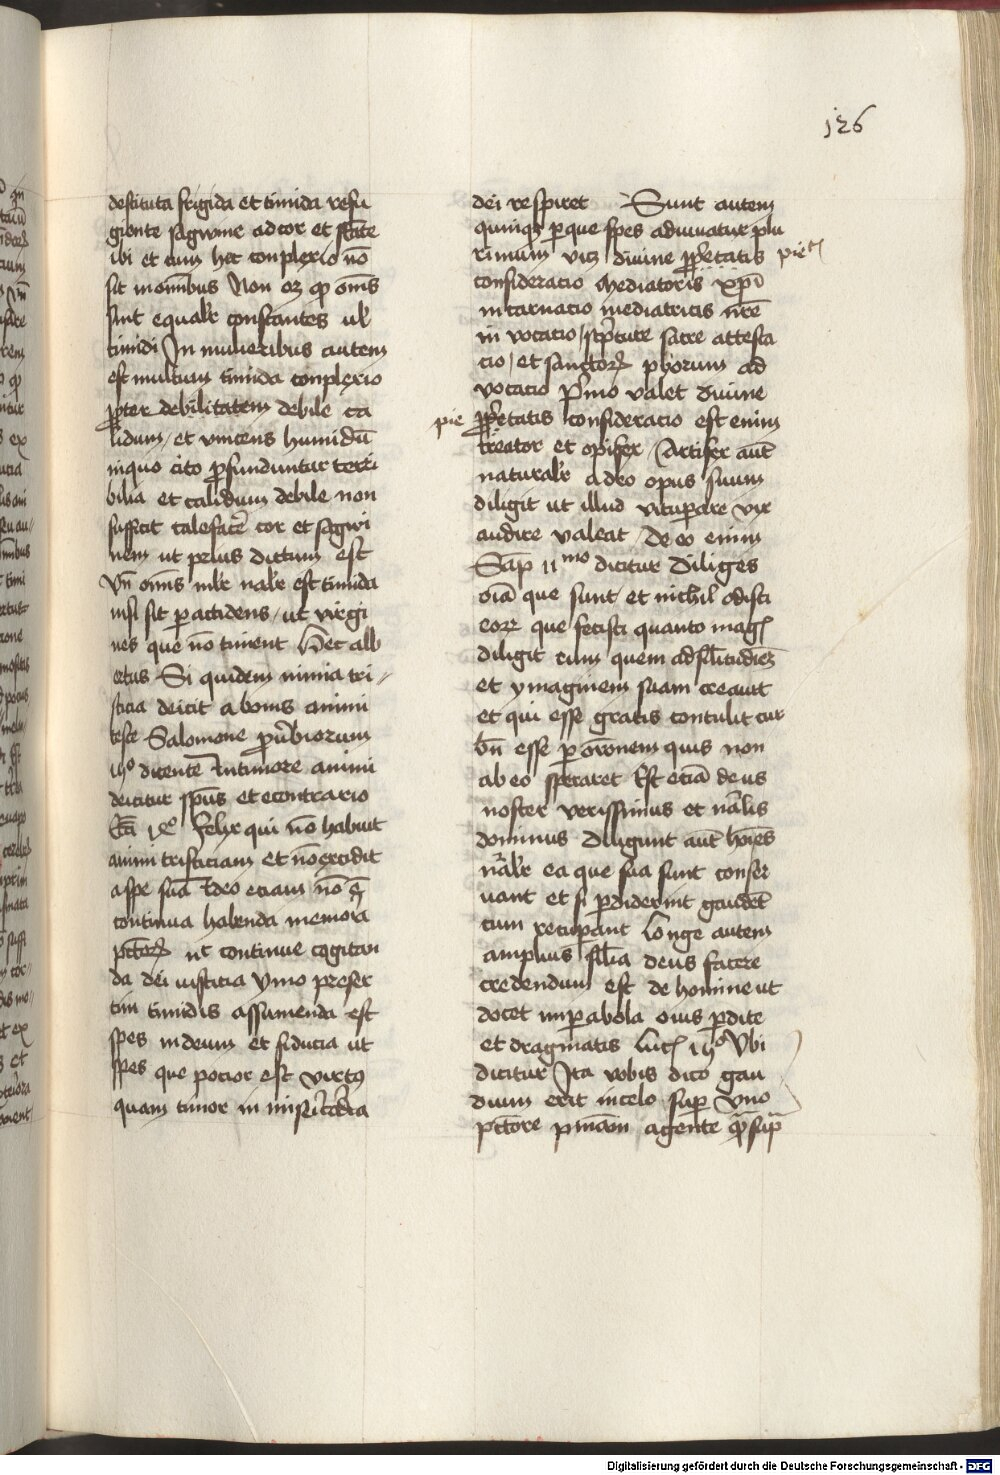 126
destituta frigida et timida refu
giente sagwine ad cor et stāte
ibi et cum hec conplexio nō
sit in oīnibus Non oꝫ ꝙ om̄s
sint equalr̄ constantes ul̄
timidi In mulieribus autem
est multum timida conplexio
ꝓpter debilitatem debile ca
lidum / et vincens humidū
in quo cito ꝓfunduntur terri
bilia et calidum debile non
sufficit calefacē cor et sagwi
nem ut prius dictum est
Vn̄ om̄s mlr̄ nalr̄ est timida
nisi sit ꝑ accidens / ut virgi
nes que nō timent Hec alb
ertus Si quidem nimia tri
sticia deicit a bonis animi
teste Salomone ꝓūbiorum
dicente In timore animi
deicitur sp̄us et econtrario
Felix qui nō habuit
animi tristiciam et nō excidit
a spe sua Ideo etiam nō ē
continua habenda memoīa
pc̄torꝝ ut continue cogitan
da dei iusticia Ymo preser
tim timidis assumenda est
spes in deum et fiducia ut
spes que pocior est virtꝰ
quam timor in mīsīcordia
dei respiret Sunt autem
quinqꝫ ꝑ que spes adiuuatur plu
rimum viꝫ diuine ꝓp̄etatis piet̄
consideracio Mediatoris xp̄i
incarnacio mediatricis nr̄e
in vocacio / sc̄pture sacre attesta
cio / et sanctorꝝ pborum ad
vocacio P̄mo valet diuine
pie ꝓp̄etatis consideracio est enim
creator et opifex / Artifex aut̄
naturalr̄ adeo opus suum
diligit ut illud vituꝑare vix
audire valeat / De eo enim
Sap̄ 11mo dicitur Diliges
oīa que sunt / et nichil odisti
eoꝝ que fecisti quanto maḡ
diligit cum quem ad sil̄itudieꝫ
et ymaginem suam creauit
et qui esse gratis contulit cur
bn̄ esse ꝑ orōnem quis non
ab eo speraret Est etiā deus
noster verissimus et nālis
dominus Diligunt aut̄ hoīes
nālr̄ ea que sua sunt conser
uant et si ꝑdiderint gaudēt
cum recuꝑant Longe autem
amplius sil̄ia deus facere
credendum est de homine ut
docet in ꝑabola ouis ꝑdite
et dragmatis Luc̄ Vbi
dicitur Ita vobis dico gau
dium erit in celo suꝑ Vno
pc̄tore pn̄iam agente ꝙ̄ suꝑ
Digitalisierung gefördert durch die Deutsche Forschungsgemeinschaft - DFG